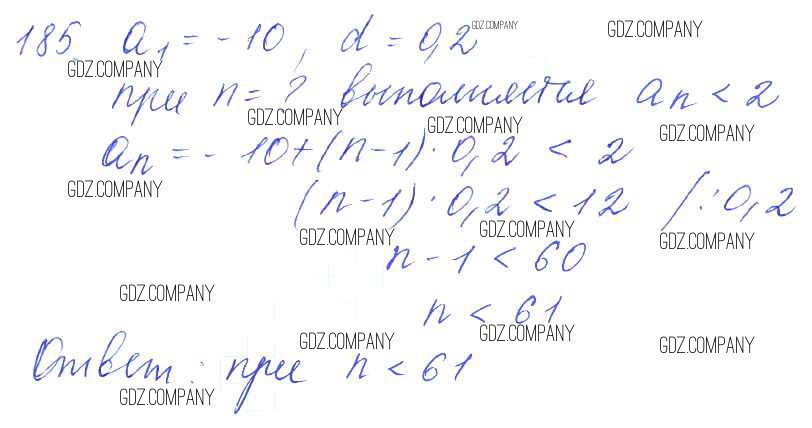 185 a₁ = -10, d = 0,2 GDZ.COMPANY GDZ.COMPANY
GDZ.COMPANY
при n = ? выполняется aₙ < 2
GDZ.COMPANY GDZ.COMPANY GDZ.COMPANY
aₙ = -10+(n-1)·0,2 < 2
GDZ.COMPANY
(n-1)·0,2 < 12 /:0,2
GDZ.COMPANY GDZ.COMPANY GDZ.COMPANY
n-1 < 60
GDZ.COMPANY
n < 61
GDZ.COMPANY GDZ.COMPANY GDZ.COMPANY
Ответ: при n < 61
GDZ.COMPANY